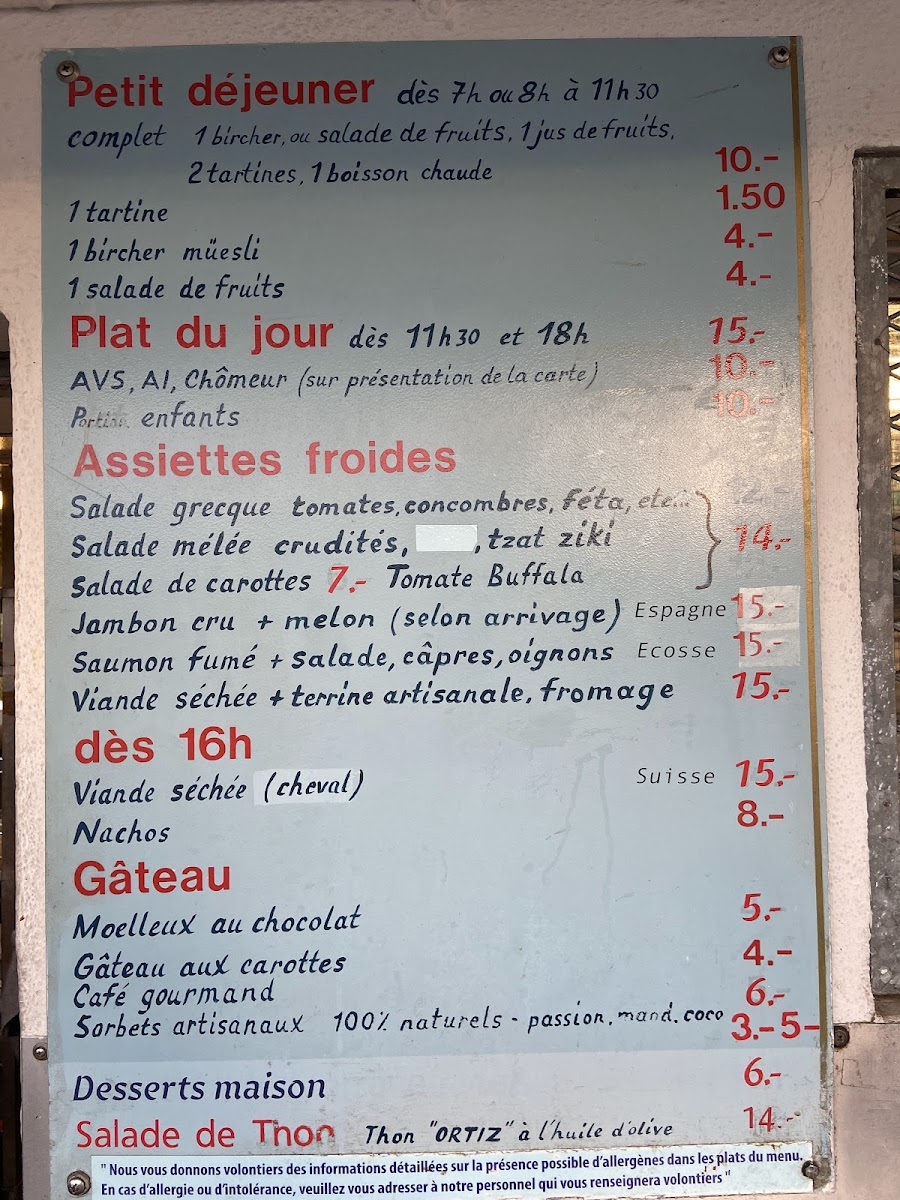 Petit déjeuner dès 7h ou 8h à 11h30
complet 1 bircher, ou salade de fruits, 1 jus de fruits,
2 tartines, 1 boisson chaude 10.-
1 tartine 1.50
1 bircher müesli 4.-
1 salade de fruits 4.-
Plat du jour dès 11h30 et 18h 15.-
AVS, AI, Chômeur (sur présentation de la carte) 10.-
Portion enfants 10.-
Assiettes froides
Salade grecque tomates, concombres, féta, etc...
Salade mélée crudités, , tzat ziki 14.-
Salade de carottes 7.- Tomate Buffala
Jambon cru + melon (selon arrivage) Espagne 15.-
Saumon fumé + salade, câpres, oignons Ecosse 15.-
Viande séchée + terrine artisanale, fromage 15.-
dès 16h
Viande séchée (cheval) Suisse 15.-
Nachos 8.-
Gâteau
Moelleux au chocolat 5.-
Gâteau aux carottes 4.-
Café gourmand 6.-
Sorbets artisanaux 100% naturels - passion, mand. coco 3.- 5-
Desserts maison 6.-
Salade de Thon Thon "ORTIZ" à l'huile d'olive 14.-
" Nous vous donnons volontiers des informations détaillées sur la présence possible d'allergènes dans les plats du menu.
En cas d'allergie ou d'intolérance, veuillez vous adresser à notre personnel qui vous renseignera volontiers "